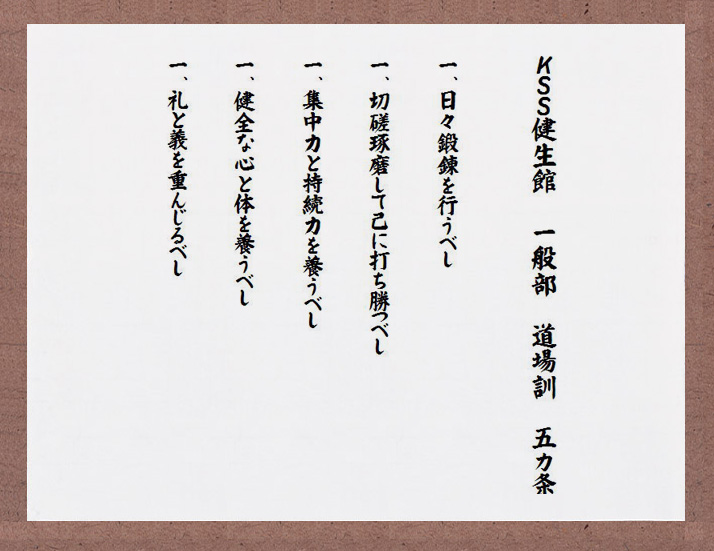 KSS健生館　一般部　道場訓　五カ条
一、日々鍛錬を行うべし
一、切磋琢磨して己に打ち勝つべし
一、集中力と持続力を養うべし
一、健全な心と体を養うべし
一、礼と義を重んじるべし